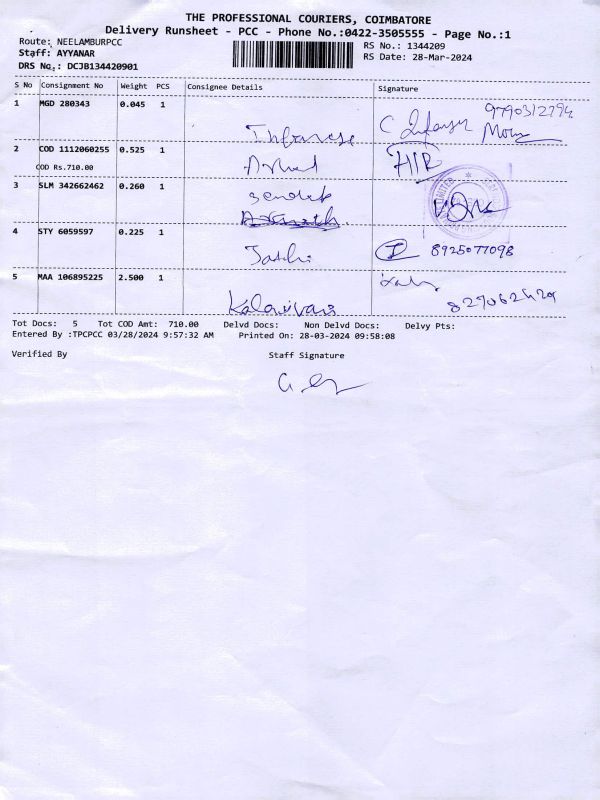 THE PROFESSIONAL COURIERS, COIMBATORE
Delivery Runsheet - PCC - Phone No.:0422-3505555 - Page No.:1
Route: NEELAMBURPCC
Staff: AYYANAR
DRS No.: DCJB134420901
RS No.: 1344209
RS Date: 28-Mar-2024
S No Consignment No Weight PCS Consignee Details Signature
1 MGD 280343 0.045 1
9790312794
2 COD 1112060255 0.525 1
COD Rs.710.00
3 SLM 342662462 0.260 1
4 STY 6059597 0.225 1
8925077098
5 MAA 106895225 2.500 1
Kalaivani
Tot Docs: 5 Tot COD Amt: 710.00 Delvd Docs: Non Delvd Docs: Delvy Pts:
Entered By :TPCPCC 03/28/2024 9:57:32 AM Printed On: 28-03-2024 09:58:08
Verified By Staff Signature